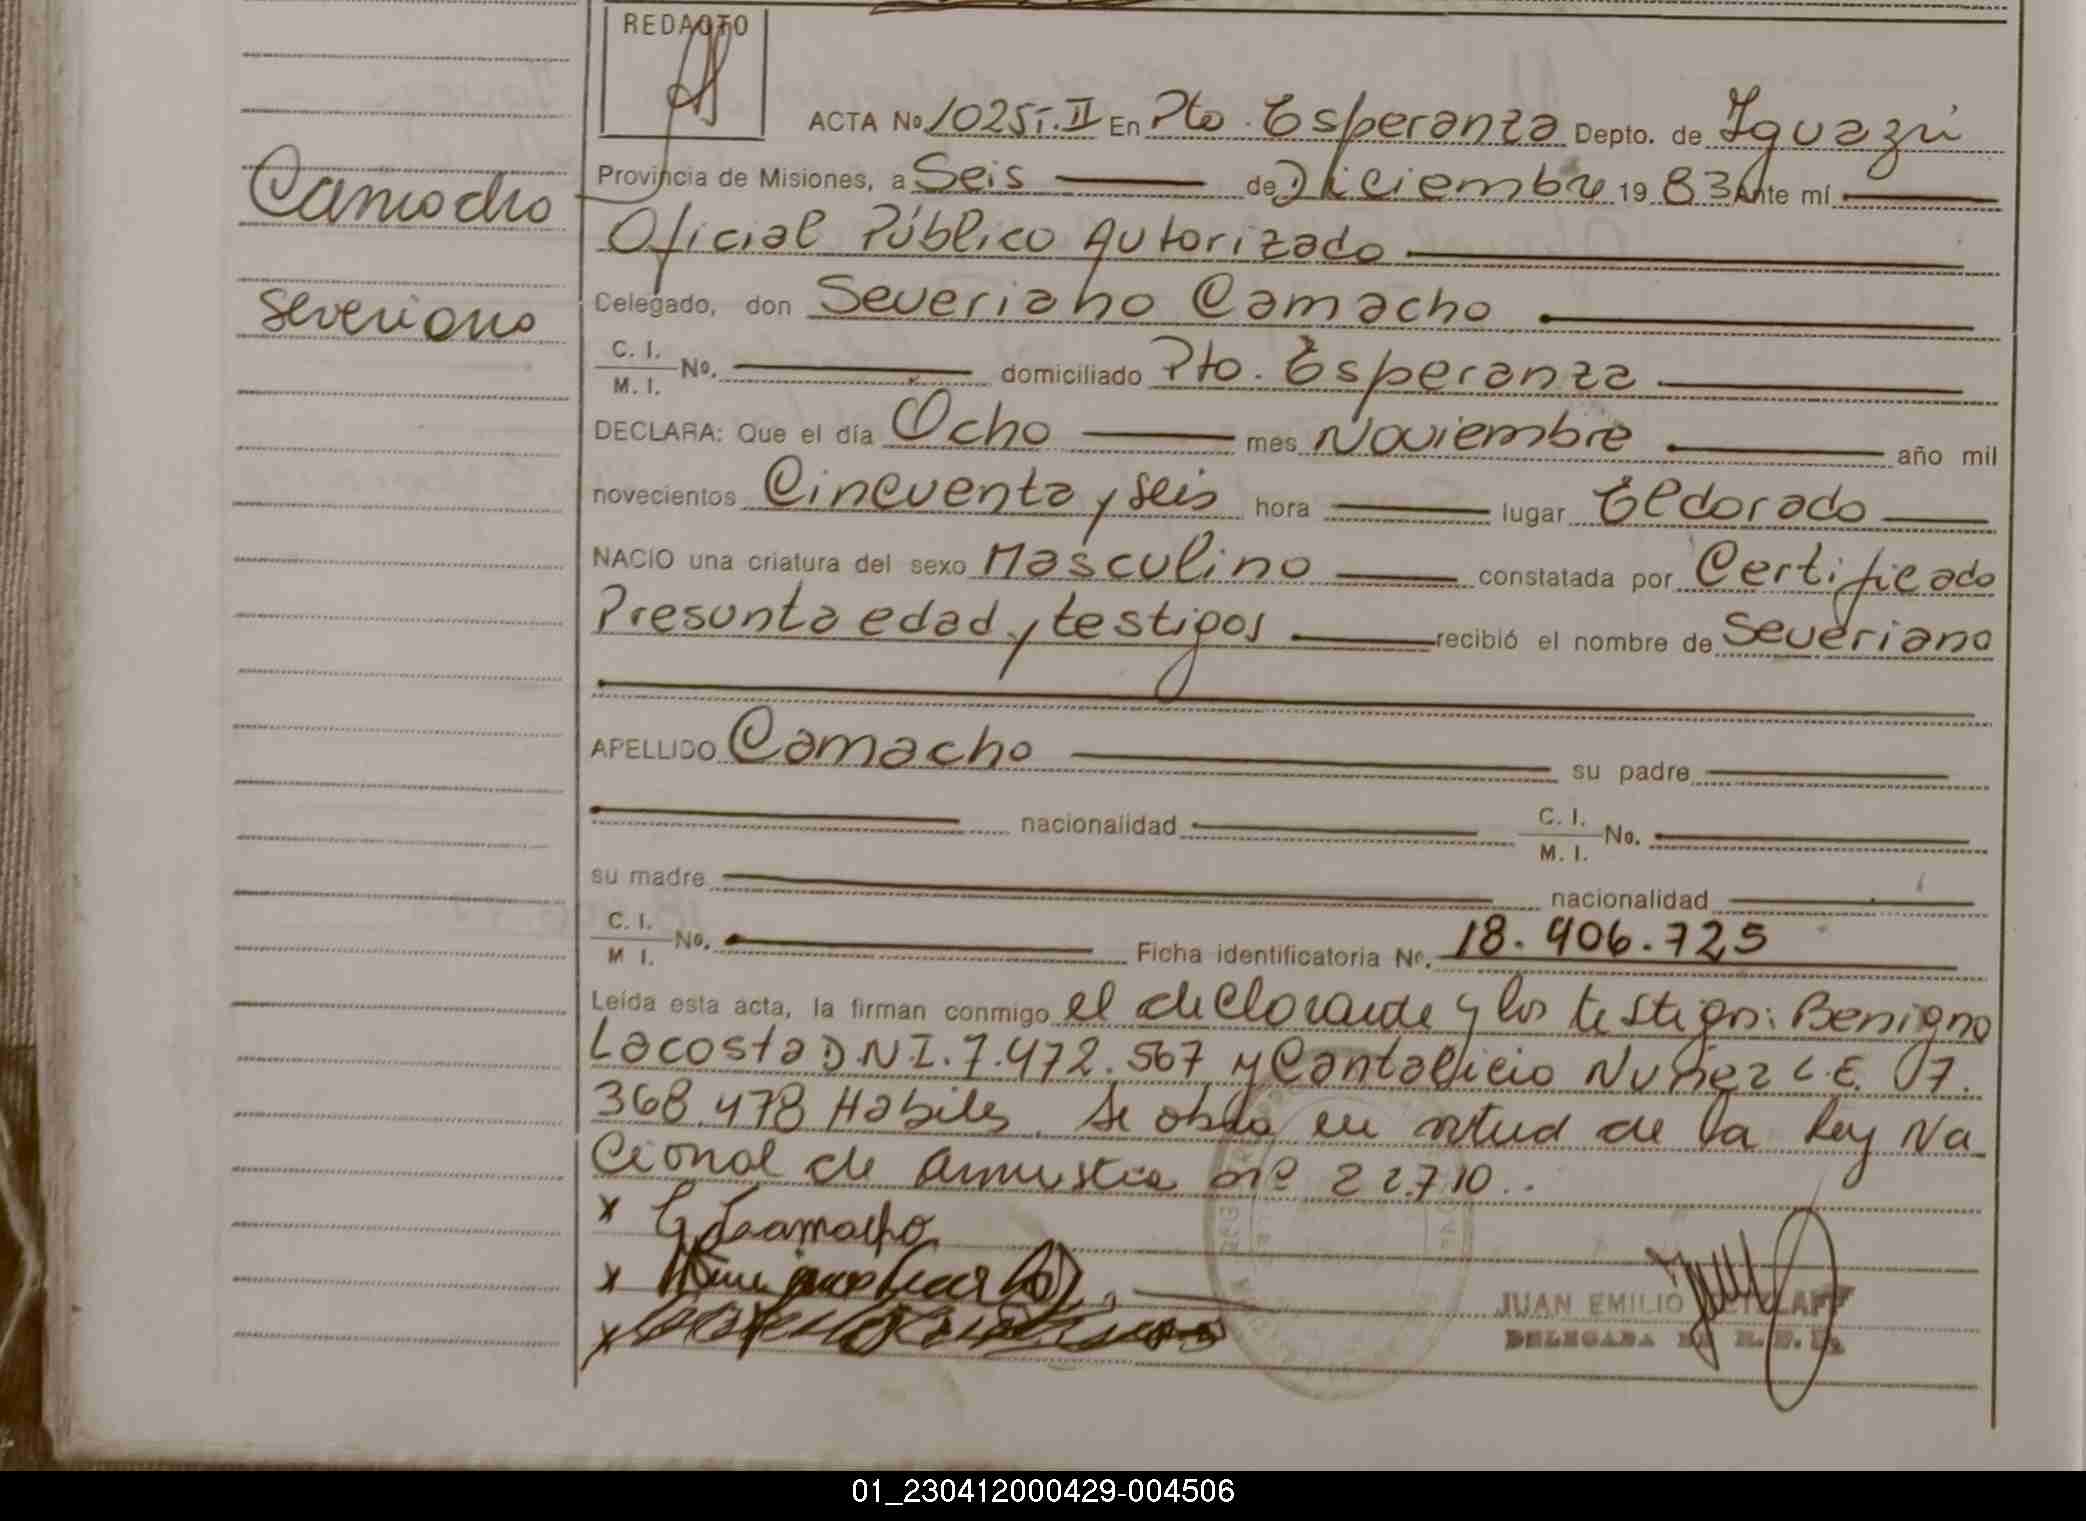 REDACTO
ACTA No 1025 T. II En Pto. Esperanza Depto. de Iguazú
Provincia de Misiones, a Seis de Diciembre 19 83 Ante mí
Oficial Público Autorizado
Celegado, don Severiano Camacho
C. I. M. I. No. domiciliado Pto. Esperanza
DECLARA: Que el día Ocho mes Noviembre año mil
novecientos Cincuenta y seis hora lugar Eldorado
NACIO una criatura del sexo Masculino constatada por Certificado
Presunta edad y testigos recibió el nombre de Severiano
APELLIDO Camacho su padre
nacionalidad C. I. M. I. No.
su madre nacionalidad
C. I. M I. No. Ficha identificatoria No. 18.906.725
Leída esta acta, la firman conmigo el declarante y los testigos: Benigno
Lacosta D.N.I. 7.472.567 y Cantalicio Nuñez L.E. 7.
368.478 Habiles. Se obra en virtud de la Ley Na
cional de amnistia nº 22.710..
x Camacho
x
x
JUAN EMILIO
DELEGADA DE R. E. P.
Camacho
Severiano
01_230412000429-004506